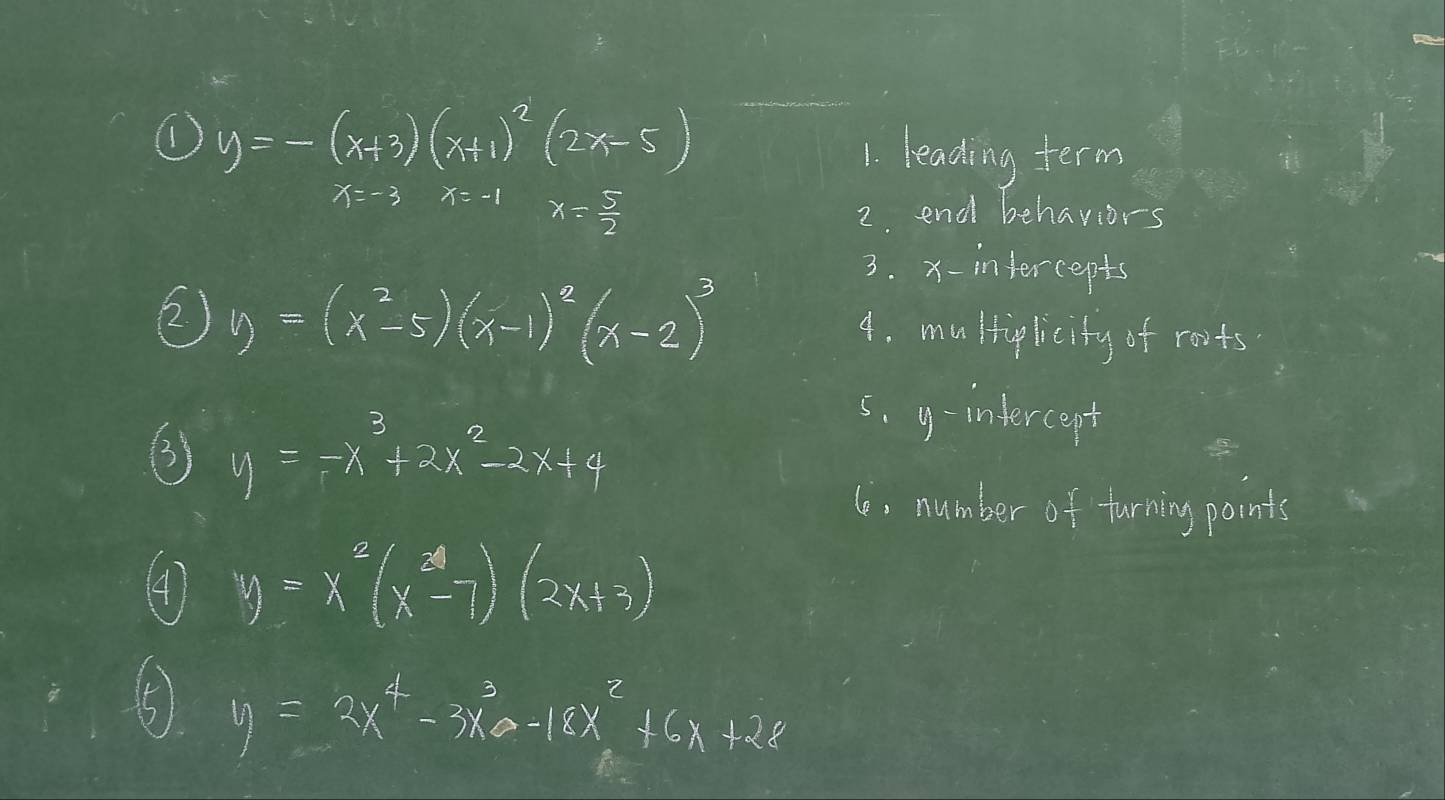 ① y = - (x+3)(x+1)² (2x-5)
x=-3 x=-1 x=5/2
② y = (x²-5)(x-1)² (x-2)³
③ y = -x³+2x²-2x+4
④ y = x²(x²-7)(2x+3)
⑤ y = 2x⁴-3x³-18x²+6x+28
1. leading term
2. end behaviors
3. x-intercepts
4. multiplicity of roots
5. y-intercept
6. number of turning points